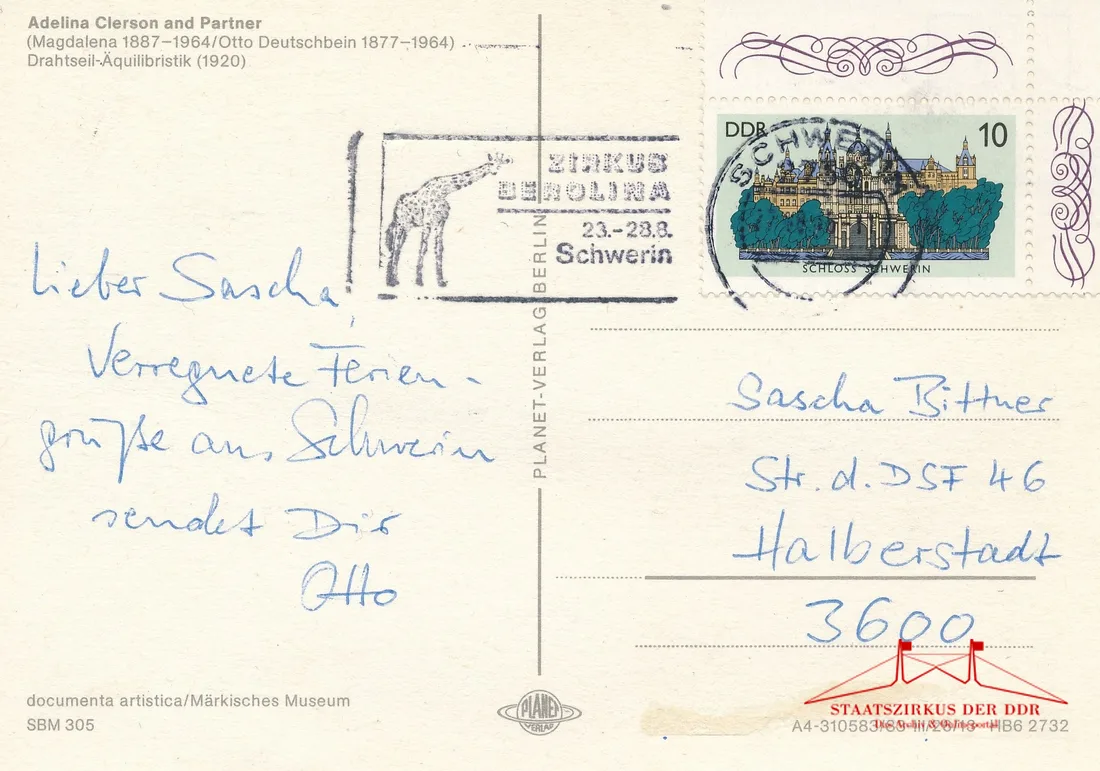 Adelina Clerson and Partner
(Magdalena 1887–1964/Otto Deutschbein 1877–1964)
Drahtseil-Äquilibristik (1920)
ZIRKUS
BEROLINA
23.–28.8.
Schwerin
DDR
10
SCHLOSS SCHWERIN
SCHWERIN
Lieber Sascha,
Verregnete Ferien-
grüße aus Schwerin
sendet Dir
Otto
PLANET-VERLAG BERLIN
Sascha Bittner
Str. d. DSF 46
Halberstadt
3600
documenta artistica/Märkisches Museum
SBM 305
PLANET
VERLAG
STAATSZIRKUS DER DDR
Das Archiv & Onlineportal
HB6 2732